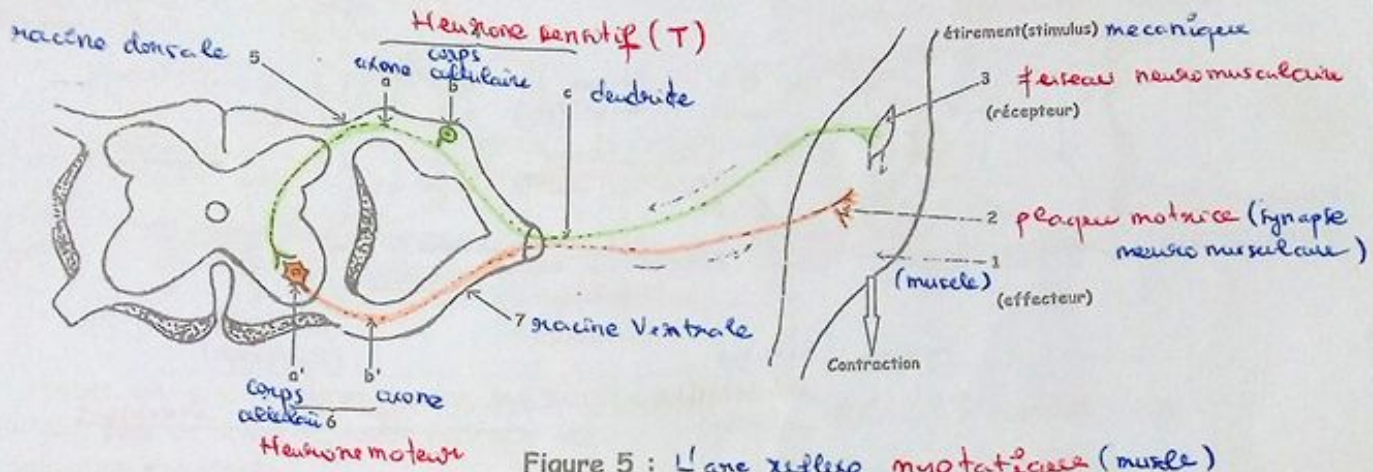 Neurone sensitif (T)
racine dorsale 5
axone
a
corps
cellulaire
b
c dendride
étirement(stimulus) mecanique
3 fuseau neuromusculaire
(récepteur)
2 plaque motrice (synapse
neuromusculaire)
1
(muscle) (effecteur)
7 racine Ventrale
Contraction
a'
corps
cellulair
b'
axone
6
Neurone moteur
Figure 5 : L'arc reflexe myotatique (muscle)